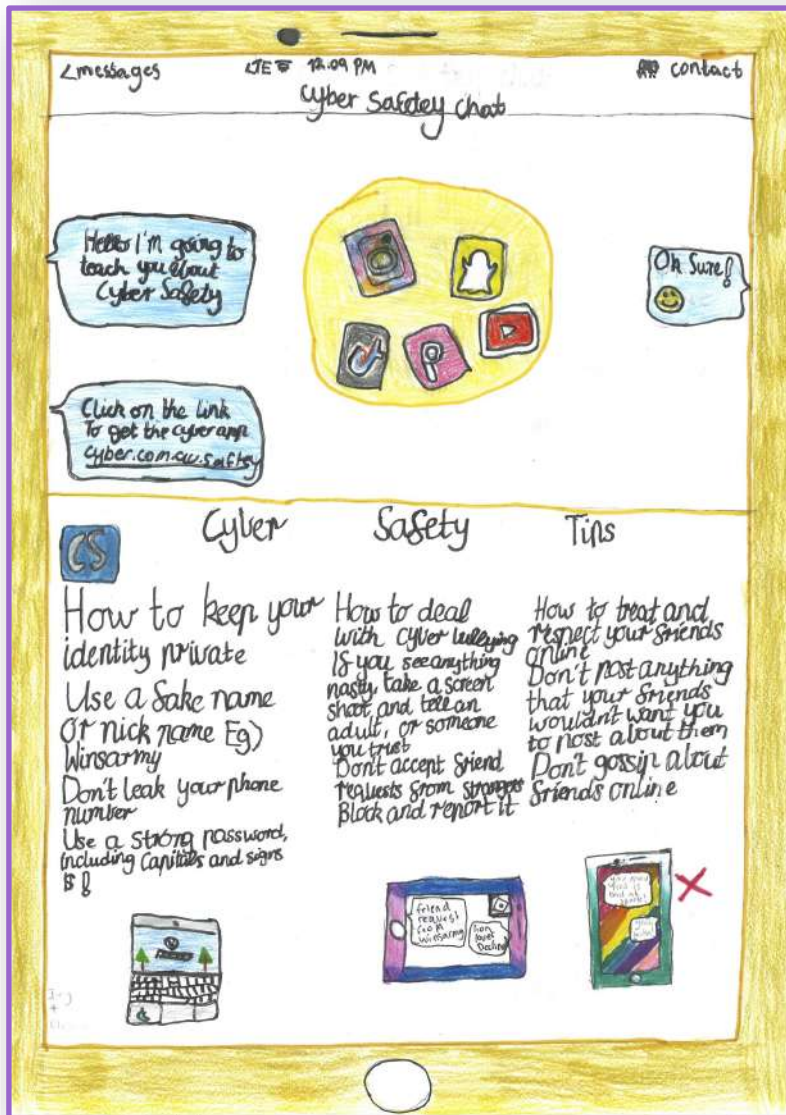 <messages
LTE 12.09 PM
contact
Cyber Safdey chat
Hello I'm going to
teach you about
Cyber Safety
Oh Sure!
Click on the link
To get the cyber app
cyber.com.au.saftey
CS
Cyber Safety Tips
How to keep your
identity private
Use a fake name
or nick name Eg)
Winsarmy
Don't leak your phone
number
Use a strong password,
including Capitals and signs
!
How to deal
with cyber bullying
If you see anything
nasty, take a screen
shoot and tell an
adult, or someone
you trust
Don't accept friend
requests from strangers
Block and report it
How to treat and
respect your friends
online
Don't post anything
that your friends
wouldn't want you
to post about them
Don't gossip about
friends online
friend
request
from
winsarmy